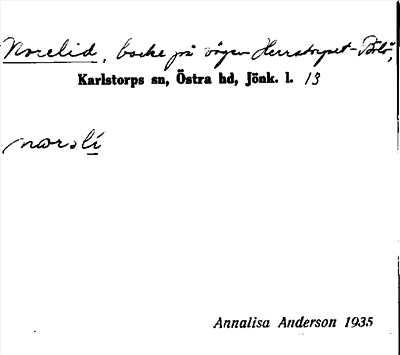 Norelid, backe på vägen Herrstorpet-Bölö,
Karlstorps sn, Östra hd, Jönk. l. 13
norəlí
Annalisa Anderson 1935